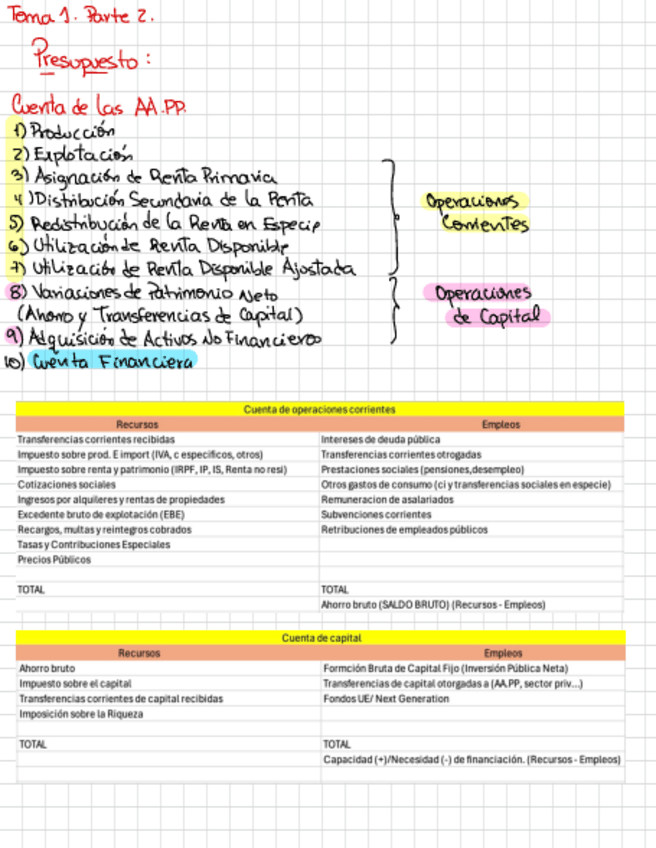 Tema 1. Parte 2.
Presupuesto:
Cuenta de las AA.PP.
1) Producción
2) Explotación
3) Asignación de Renta Primaria
4) Distribución Secundaria de la Renta
5) Redistribución de la Renta en Especie
6) Utilización de Renta Disponible
7) Utilización de Renta Disponible Ajustada
Operaciones
Corrientes
8) Variaciones de Patrimonio Neto
(Ahorro y Transferencias de Capital)
9) Adquisición de Activos No Financieros
Operaciones
de Capital
10) Cuenta Financiera
Cuenta de operaciones corrientes
Recursos Empleos
Transferencias corrientes recibidas Intereses de deuda pública
Impuesto sobre prod. E import (IVA, c especificos, otros) Transferencias corrientes otrogadas
Impuesto sobre renta y patrimonio (IRPF, IP, IS, Renta no resi) Prestaciones sociales (pensiones,desempleo)
Cotizaciones sociales Otros gastos de consumo (ci y transferencias sociales en especie)
Ingresos por alquileres y rentas de propiedades Remuneracion de asalariados
Excedente bruto de explotación (EBE) Subvenciones corrientes
Recargos, multas y reintegros cobrados Retribuciones de empleados públicos
Tasas y Contribuciones Especiales
Precios Públicos
TOTAL TOTAL
Ahorro bruto (SALDO BRUTO) (Recursos - Empleos)
Cuenta de capital
Recursos Empleos
Ahorro bruto Formción Bruta de Capital Fijo (Inversión Pública Neta)
Impuesto sobre el capital Transferencias de capital otorgadas a (AA.PP, sector priv...)
Transferencias corrientes de capital recibidas Fondos UE/ Next Generation
Imposición sobre la Riqueza
TOTAL TOTAL
Capacidad (+)/Necesidad (-) de financiación. (Recursos - Empleos)